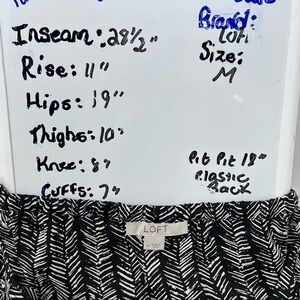 Brand:
Loft
Inseam: 28½"
Size:
M
Rise: 11"
Hips: 19"
Thighs: 10"
Knee: 8"
Pit Pit 18"
Plastic
Back
Cuffs: 7"
LOFT